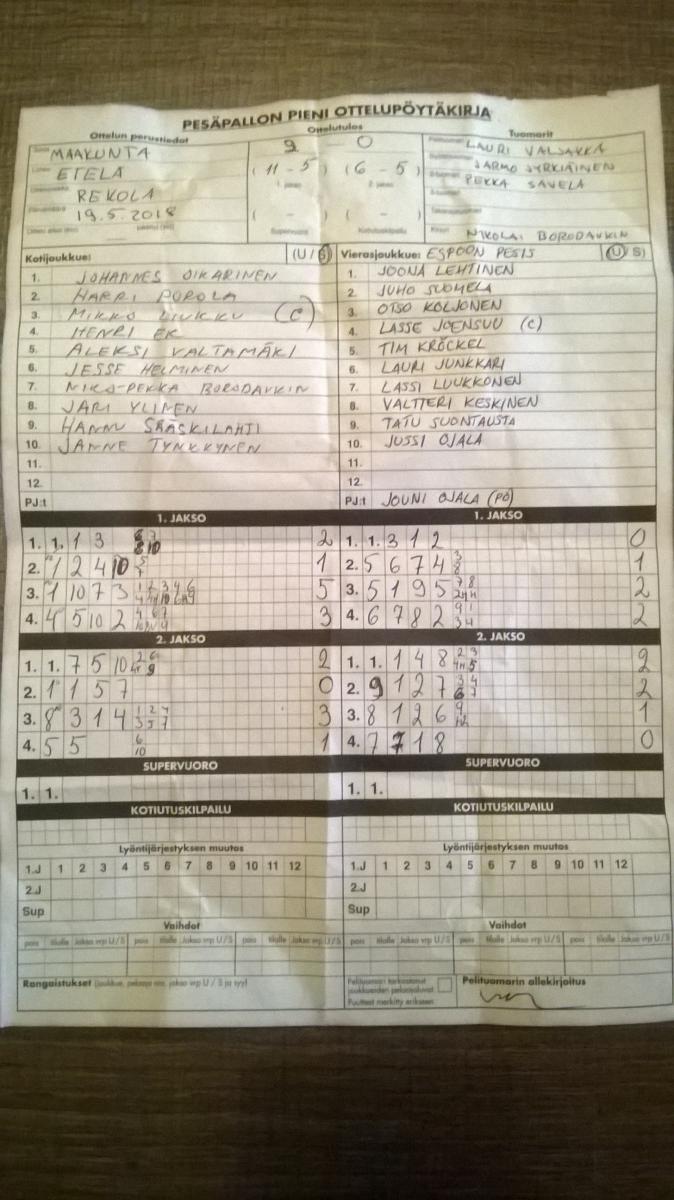 PESÄPALLON PIENI OTTELUPÖYTÄKIRJA
Ottelun perustiedot
Ottelutulos
Tuomarit
MAAKUNTA
ETELÄ
REKOLA
19.5.2018
2 0
(11-5) (6-5)
( - ) ( - )
Supervuoro Kotiutuskilpailu
LAURI VALJAKKA
JARMO JYRKIÄINEN
PEKKA SAVELA
NIKOLAI BORODAVKIN
Kotijoukkue: (U/S)
1. JOHANNES OIKARINEN
2. HARRI POROLA
3. MIKKO LIUKKU (C)
4. HENRI EK
5. ALEKSI VALTAMÄKI
6. JESSE HELMINEN
7. NIKO-PEKKA BORODAVKIN
8. JARI YLINEN
9. HANNU SÄÄSKILAHTI
10. JANNE TYNKKYNEN
11.
12.
PJ:t
Vierasjoukkue: ESPOON PESIS (U/S)
1. JOONA LEHTINEN
2. JUHO SUOMELA
3. OTSO KOLJONEN
4. LASSE JOENSUU (C)
5. TIM KRÖCKEL
6. LAURI JUNKKARI
7. LASSI LUUKKONEN
8. VALTTERI KESKINEN
9. TATU SUONTAUSTA
10. JUSSI OJALA
11.
12.
PJ:t JOUNI OJALA (PÖ)
1. JAKSO
1. 1. 1 3 2
2. 1 2 4 10 1
3. 1 10 7 3 5
4. 4 5 10 2 3
2. JAKSO
1. 1. 7 5 10 2
2. 1 1 5 7 0
3. 8 3 1 4 3
4. 5 5 6 10 1
SUPERVUORO
1. 1.
KOTIUTUSKILPAILU
Lyöntijärjestyksen muutos
1.J 1 2 3 4 5 6 7 8 9 10 11 12
2.J
Sup
Vaihdot
pois tilalle Jakso vrp U/S pois tilalle Jakso vrp U/S pois tilalle Jakso vrp U/S
Rangaistukset (joukkue, pelaaja nro, jakso vrp U / S ja syy)
1. JAKSO
1. 1. 3 1 2 0
2. 5 6 7 4 3 8 1
3. 5 1 9 5 2
4. 6 7 8 2 2
2. JAKSO
1. 1. 1 4 8 2
2. 9 1 2 7 2
3. 8 1 2 6 1
4. 7 7 1 8 0
SUPERVUORO
1. 1.
KOTIUTUSKILPAILU
Lyöntijärjestyksen muutos
1.J 1 2 3 4 5 6 7 8 9 10 11 12
2.J
Sup
Vaihdot
pois tilalle Jakso vrp U/S pois tilalle Jakso vrp U/S pois tilalle Jakso vrp U/S
Pelituomari tarkastanut
joukkueiden pelaajaluvat
Puutteet merkitty erikseen
Pelituomarin allekirjoitus